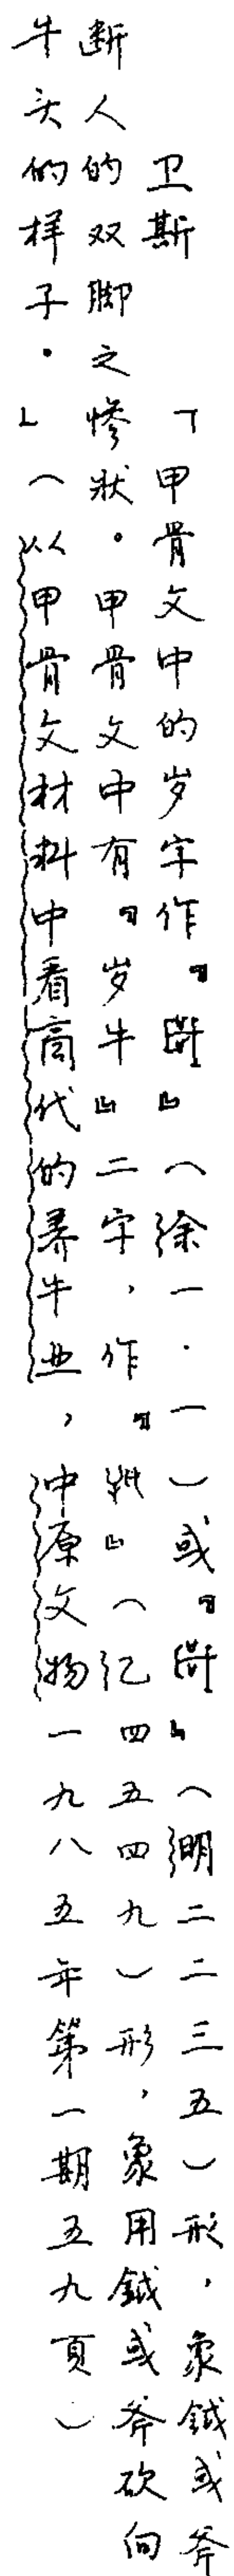 卫斯 「甲骨文中的岁字作『』（馀一·一）或『』（明二二三五）形，象鉞或斧
断人的双脚之惨状。甲骨文中有『岁牛』二字，作『』（乙四五四九）形，象用鉞或斧砍向
牛头的样子。」（以甲骨文材料中看商代的养牛业，中原文物一九八五年第一期五九頁）